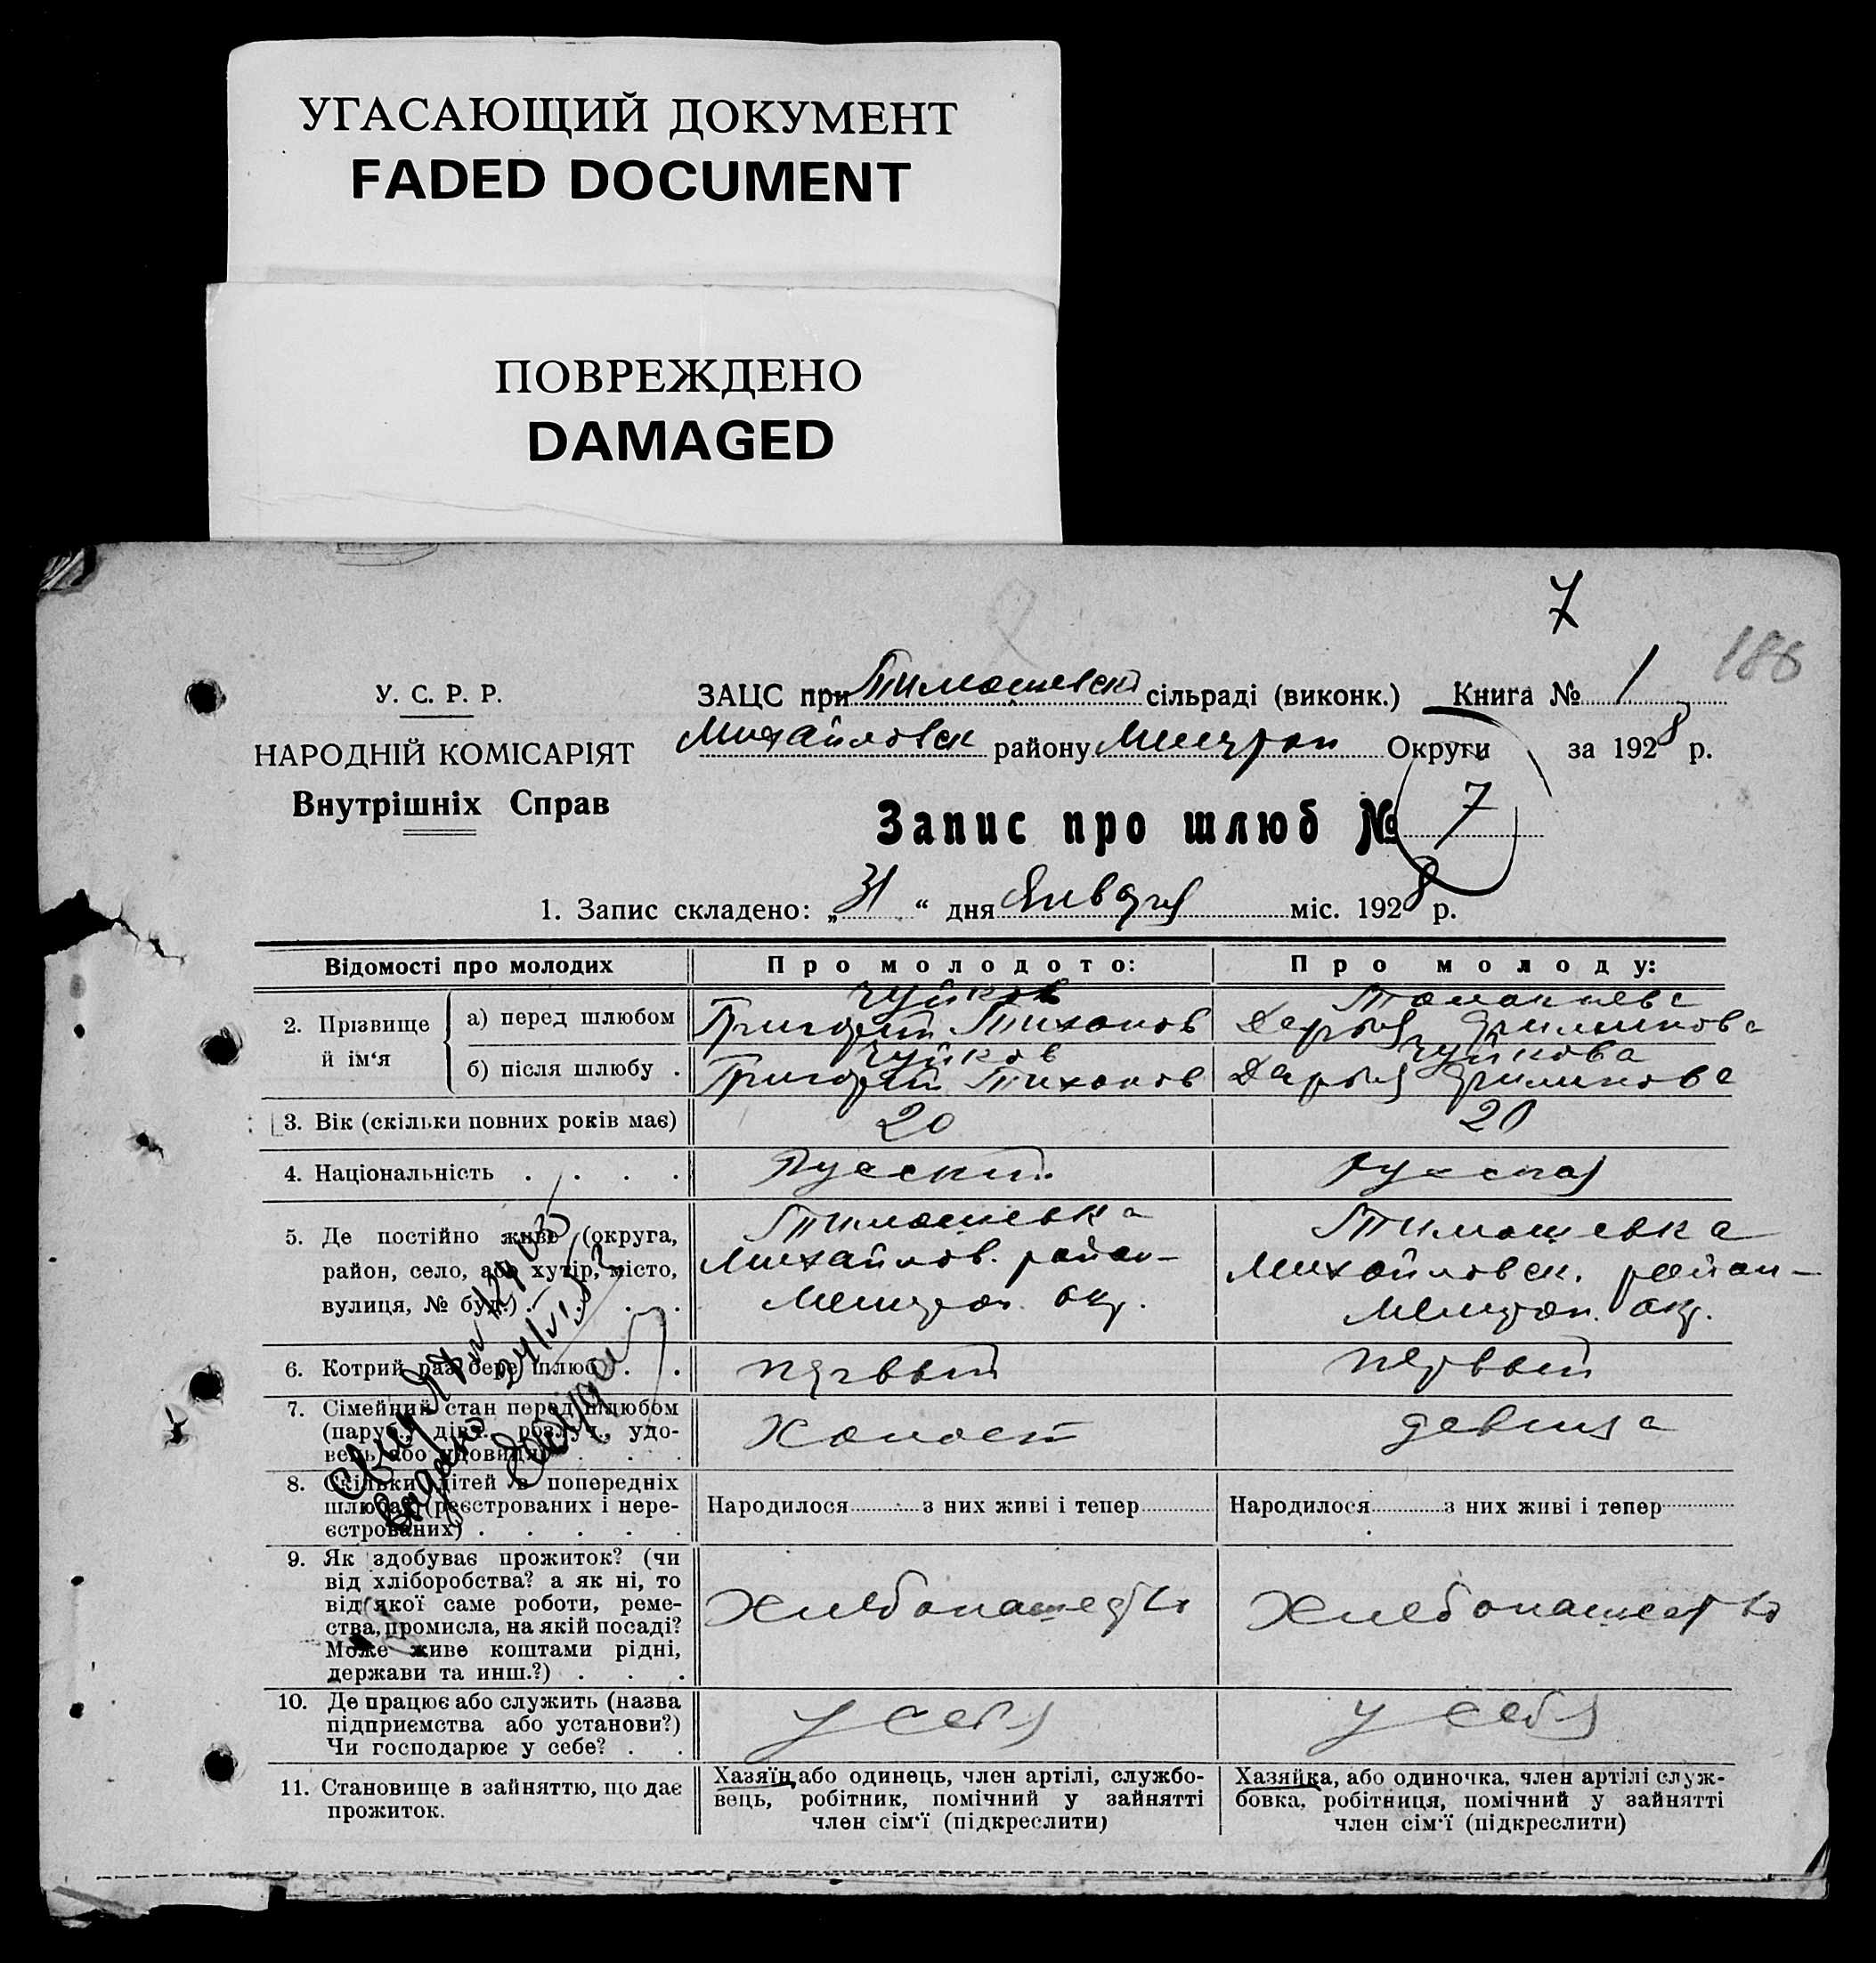 УГАСАЮЩИЙ ДОКУМЕНТ
FADED DOCUMENT
ПОВРЕЖДЕНО
DAMAGED
7
186
У. С. Р. Р.
НАРОДНІЙ КОМІСАРІЯТ
Внутрішніх Справ
ЗАЦС при Тимошевской сільраді (виконк.) Книга № 1
Михайловск району Мелитоп Округи за 1928 р.
Запис про шлюб № 7
1. Запис складено: „31“ дня Января міс. 1928 р.
Відомості про молодих
Про молодого:
Про молоду:
2. Прізвище й ім‘я
а) перед шлюбом
Чуйков
Григорий Тихонов
Дарья Филипова
б) після шлюбу .
Чуйков
Григорий Тихонов
Чуйкова
Дарья Филипова
3. Вік (скільки повних років має)
20
20
4. Національність . . . .
Русский
Русская
5. Де постійно живе (округа,
район, село, або хутір, місто,
вулиця, № буд.) . . . .
Тимошевка
Михайлов. район
Мелитоп. окр.
Тимошевка
Михайловск. район
Мелитоп. окр.
6. Котрий раз бере шлюб . .
первый
первый
7. Сімейний стан перед шлюбом
(паруб., дівч., розлуч., удо-
вець або удовиця) . . .
Холост
девица
8. Скільки дітей в попередніх
шлюбах (реєстрованих і нере-
єстрованих) . . . . .
Народилося з них живі і тепер
Народилося з них живі і тепер
9. Як здобуває прожиток? (чи
від хліборобства? а як ні, то
від якої саме роботи, реме-
ства, промисла, на якій посаді?
Може живе коштами рідні,
держави та инш.?) . . .
Хлебопашество
Хлебопашество
10. Де працює або служить (назва
підприємства або установи?)
Чи господарює у себе? . .
у себя
у себя
11. Становище в зайняттю, що дає
прожиток.
Хазяїн, або одинець, член артілі, службо-
вець, робітник, помічний у зайнятті
член сім‘ї (підкреслити)
Хазяйка, або одиночка, член артілі служ-
бовка, робітниця, помічний у зайнятті
член сім‘ї (підкреслити)